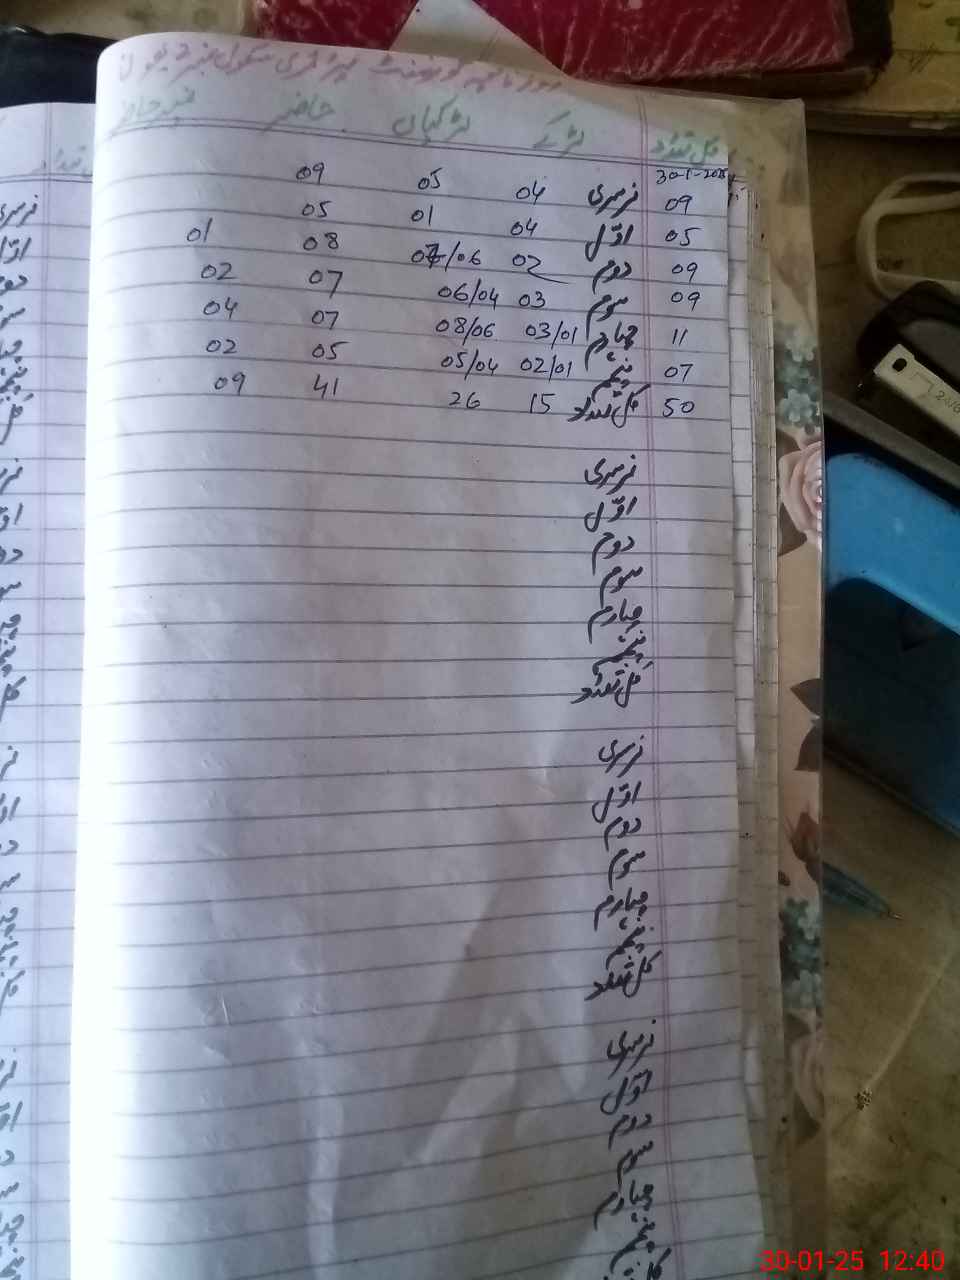 روزنامچہ گورنمنٹ پرائمری سکول نمبر 2
کل تعداد لڑکے لڑکیاں حاضر غیر حاضر
30-1-2025
09 نرسری 04 05 09
05 اوّل 04 01 05
09 دوم 02 07/06 08 01
09 سوم 03 06/04 07 02
11 چہارم 03/01 08/06 07 04
07 پنجم 02/01 05/04 05 02
50 کل تعداد 15 26 41 09
نرسری
اوّل
دوم
سوم
چہارم
پنجم
کل تعداد
نرسری
اوّل
دوم
سوم
چہارم
پنجم
کل تعداد
نرسری
اوّل
دوم
سوم
چہارم
پنجم
30-01-25 12:40